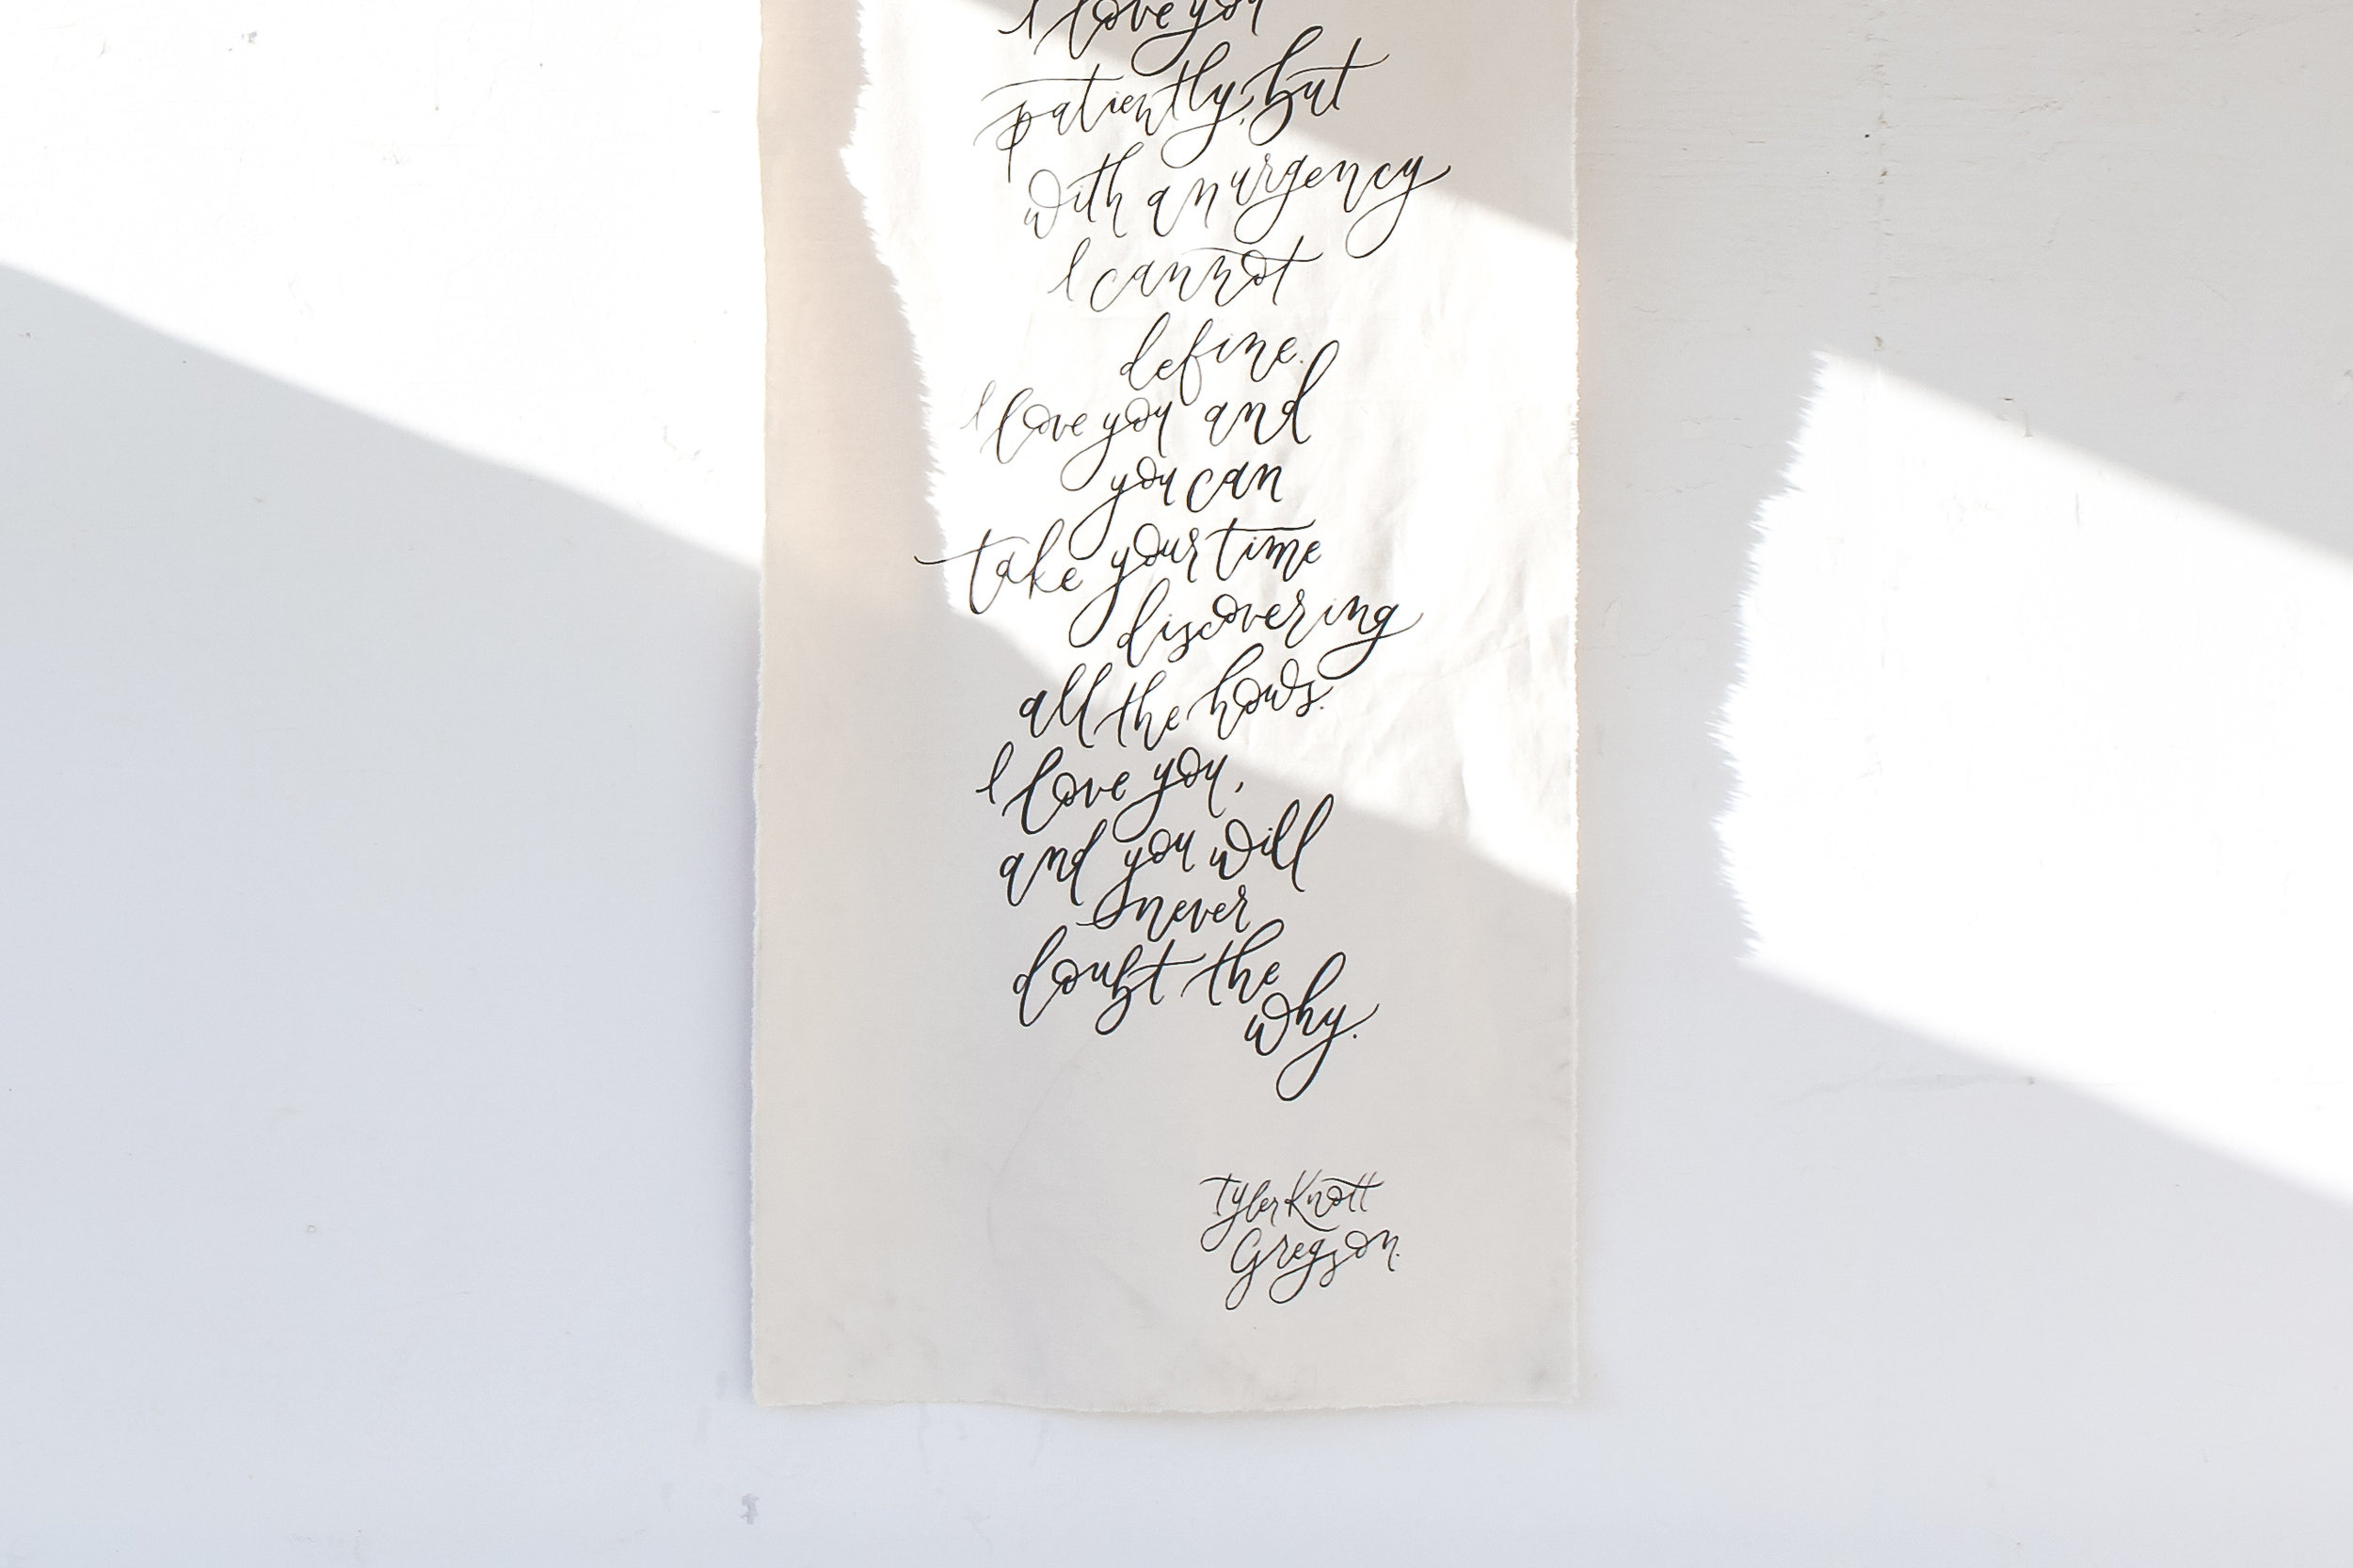 I love you
patiently, but
with an urgency
I cannot
define.
I love you and
you can
take your time
discovering
all the hows.
I love you,
and you will
never
doubt the
why.
Tyler Knott
Gregson.